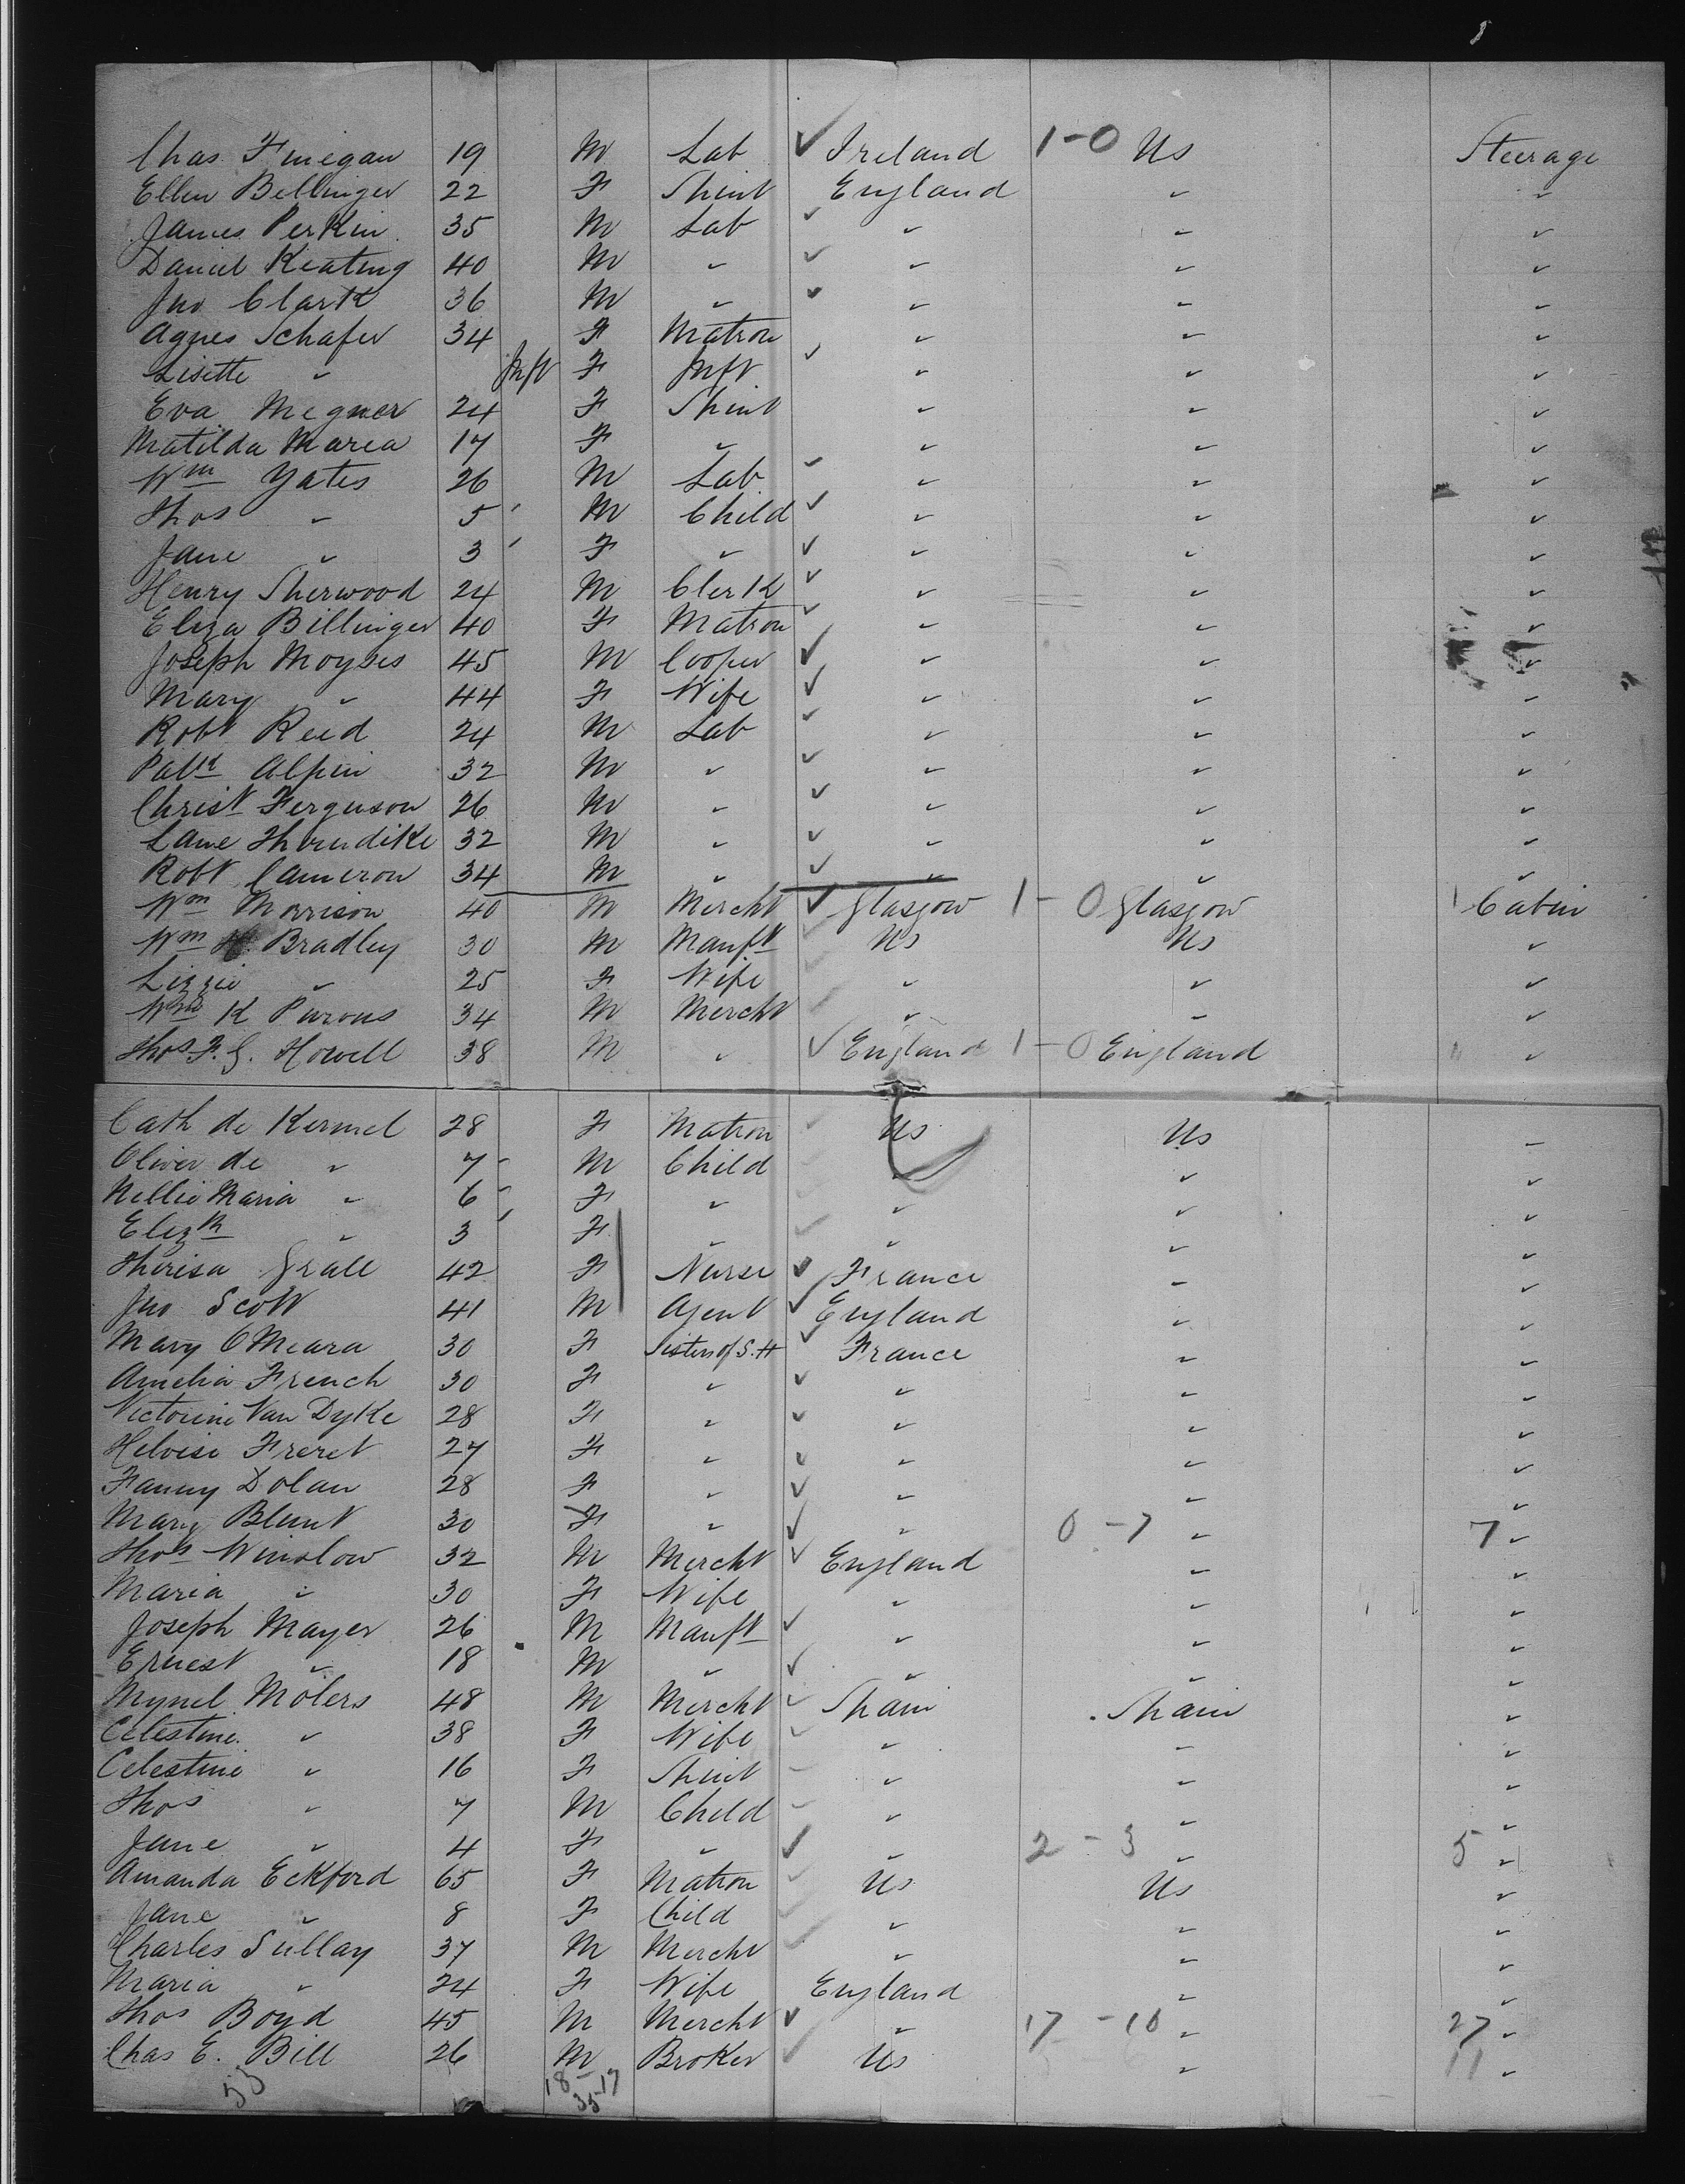 Chas Finegan 19 M Lab ✓ Ireland 1-0 Us Steerage
Ellen Bellinger 22 F Spint England " "
James Perkin 35 M Lab ✓ " " "
Daniel Keating 40 M " ✓ " " "
Jno Clark 36 M " ✓ " " "
Agnes Schafer 34 F Matron " " "
Lisette " Inft F Inft ✓ " " "
Eva Megner 24 F Spint " " "
Matilda Maria 17 F " " " "
Wm Yates 26 M Lab ✓ " " "
Thos " 5 M Child ✓ " " "
Jane " 3 F " ✓ " " "
Henry Sherwood 24 M Clerk ✓ " " "
Eliza Billinger 40 F Matron ✓ " " "
Joseph Moyses 45 M Cooper ✓ " " "
Mary " 44 F Wife ✓ " " "
Robt Reed 24 M Lab ✓ " " "
Patk Alpin 32 M " ✓ " " "
Christ Ferguson 26 M " ✓ " " "
Lane Thorndike 32 M " ✓ " " "
Robt Cameron 34 M " ✓ " " "
Wm Morrison 40 M Mercht ✓ Glasgow 1-0 Glasgow 1 Cabin
Wm H. Bradley 30 M Manft ✓ Us Us "
Lizzie " 25 F Wife ✓ " " "
Wm K Purous 34 M Mercht ✓ " " "
Thos F. G. Howell 38 M " ✓ England 1-0 England "
Cath de Kermel 28 F Matron ✓ Us Us "
Oliver de " 7 M Child " " "
Nellie Maria " 6 F " " " "
Elizth " 3 F " ✓ " " "
Therisa Grall 42 F Nurse ✓ France " "
Jno Scott 41 M Agent ✓ England " "
Mary OMeara 30 F Sisters of S. H ✓ France " "
Amelia French 30 F " ✓ " " "
Victorine Van Dyke 28 F " ✓ " " "
Heloise Freret 27 F " ✓ " " "
Fanny Dolan 28 F " ✓ " " "
Mary Blunt 30 F " ✓ " 0-7 " 7 "
Thos Winslow 32 M Mercht ✓ England " "
Maria " 30 F Wife " " "
Joseph Mayer 26 M Manft ✓ " " "
Ernest " 18 M " ✓ " " "
Mynel Molers 48 M Mercht ✓ Spain Spain "
Celestine " 38 F Wife ✓ " " "
Celestine " 16 F Spint " " "
Thos " 7 M Child " " "
Jane " 4 F " ✓ " 2-3 " 5 "
Amanda Eckford 65 F Matron ✓ Us Us "
Jane " 8 F Child ✓ " " "
Charles Sullay 37 M Mercht ✓ " " "
Maria " 24 F Wife England " "
Thos Boyd 45 M Mercht ✓ " 17-10 " 27 "
Chas E. Bill 26 M Broker ✓ Us " 11 "
53 18-17
35